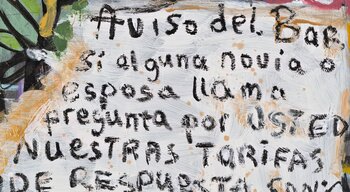 Aviso del Bar
si alguna novia o
esposa llama
pregunta por USTED
NUESTRAS TARIFAS
DE RESPUESTA SON